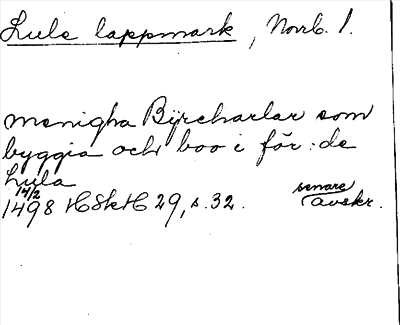 Lule lappmark, Norrb. l.
menigha Byrcharlar som
byggia och boo i för:de
Lula
14/2
1498 HSkH 29, s. 32. senare avskr.